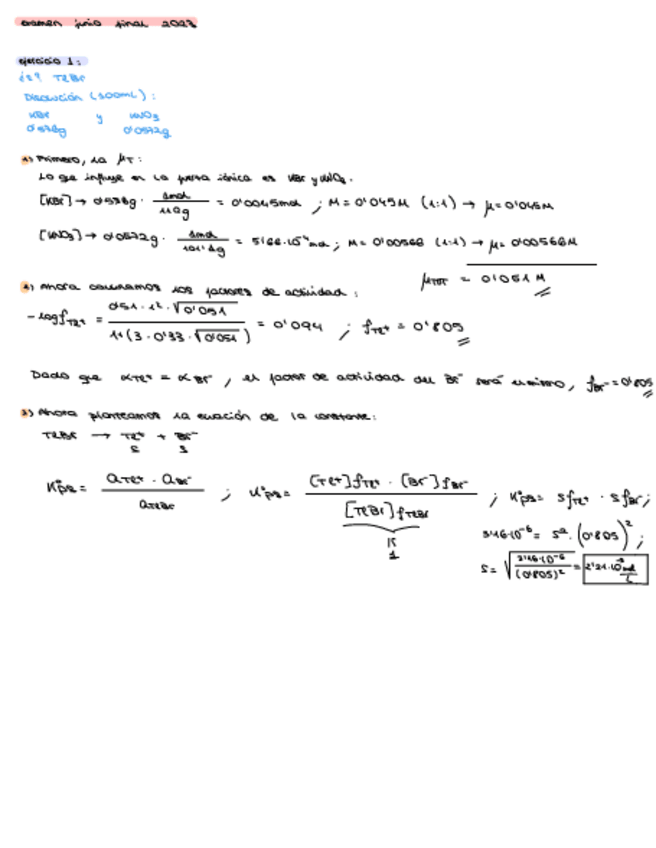 examen junio final 2023
ejercicio 1:
¿s? TlBr
Disolución (100mL):
KBr y KNO₃
0'578g 0'0572g
1) Primero, la μT:
Lo que influye en la fuerza iónica es KBr y KNO₃.
[KBr] → 0'578g · 1mol/119g = 0'0045mol ; M = 0'045M (1:1) → μ = 0'045M
[KNO₃] → 0'0572g · 1mol/101'1g = 5'66·10⁻⁴ mol ; M = 0'00566 (1:1) → μ = 0'00566M
μTOT = 0'051 M
2) Ahora calculamos los factores de actividad:
-log fTl⁺ = 0'51 · 1² · √0'051 / 1+(3 · 0'33 · √0'051) = 0'094 ; fTl⁺ = 0'805
Dado que αTl⁺ = αBr⁻, el factor de actividad del Br⁻ será el mismo, fBr⁻ = 0'805
3) Ahora planteamos la ecuación de la constante:
TlBr → Tl⁺ + Br⁻
s s
K°ps = aTl⁺ · aBr⁻ / aTlBr ; K°ps = [Tl⁺]fTl⁺ · [Br⁻]fBr⁻ / [TlBr]fTlBr ; K°ps = s fTl⁺ · s fBr⁻ ;
1
3'46·10⁻⁶ = s² · (0'805)² ;
s = √3'46·10⁻⁶/(0'805)² = 2'31·10⁻³ mol/L